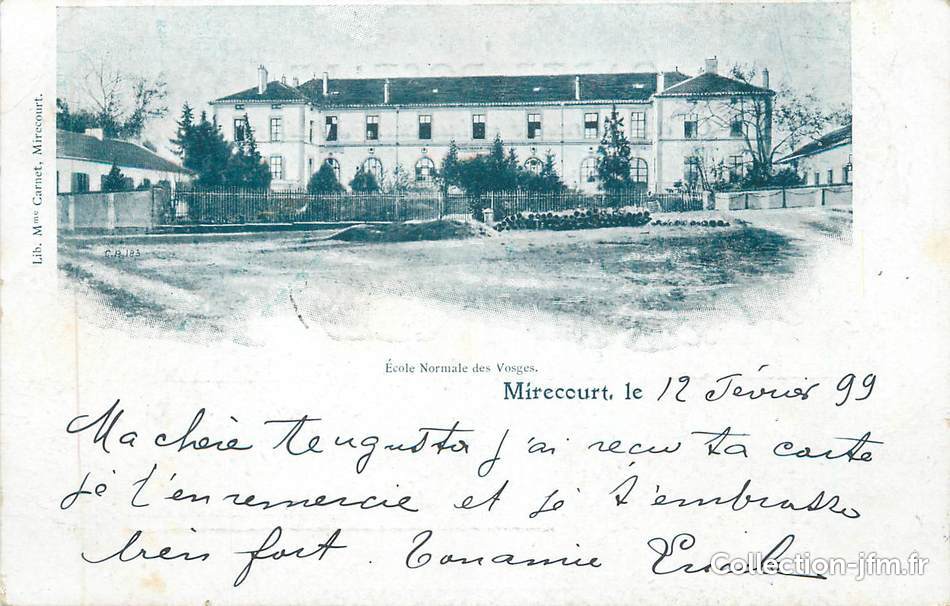 Lib. Mme Carnet, Mirecourt.
C.B. 123
École Normale des Vosges.
Mirecourt, le 12 Février 99
Ma chère Augusta j'ai reçu ta carte
je t'en remercie et je t'embrasse
bien fort. Ton amie
Collection-jfm.fr